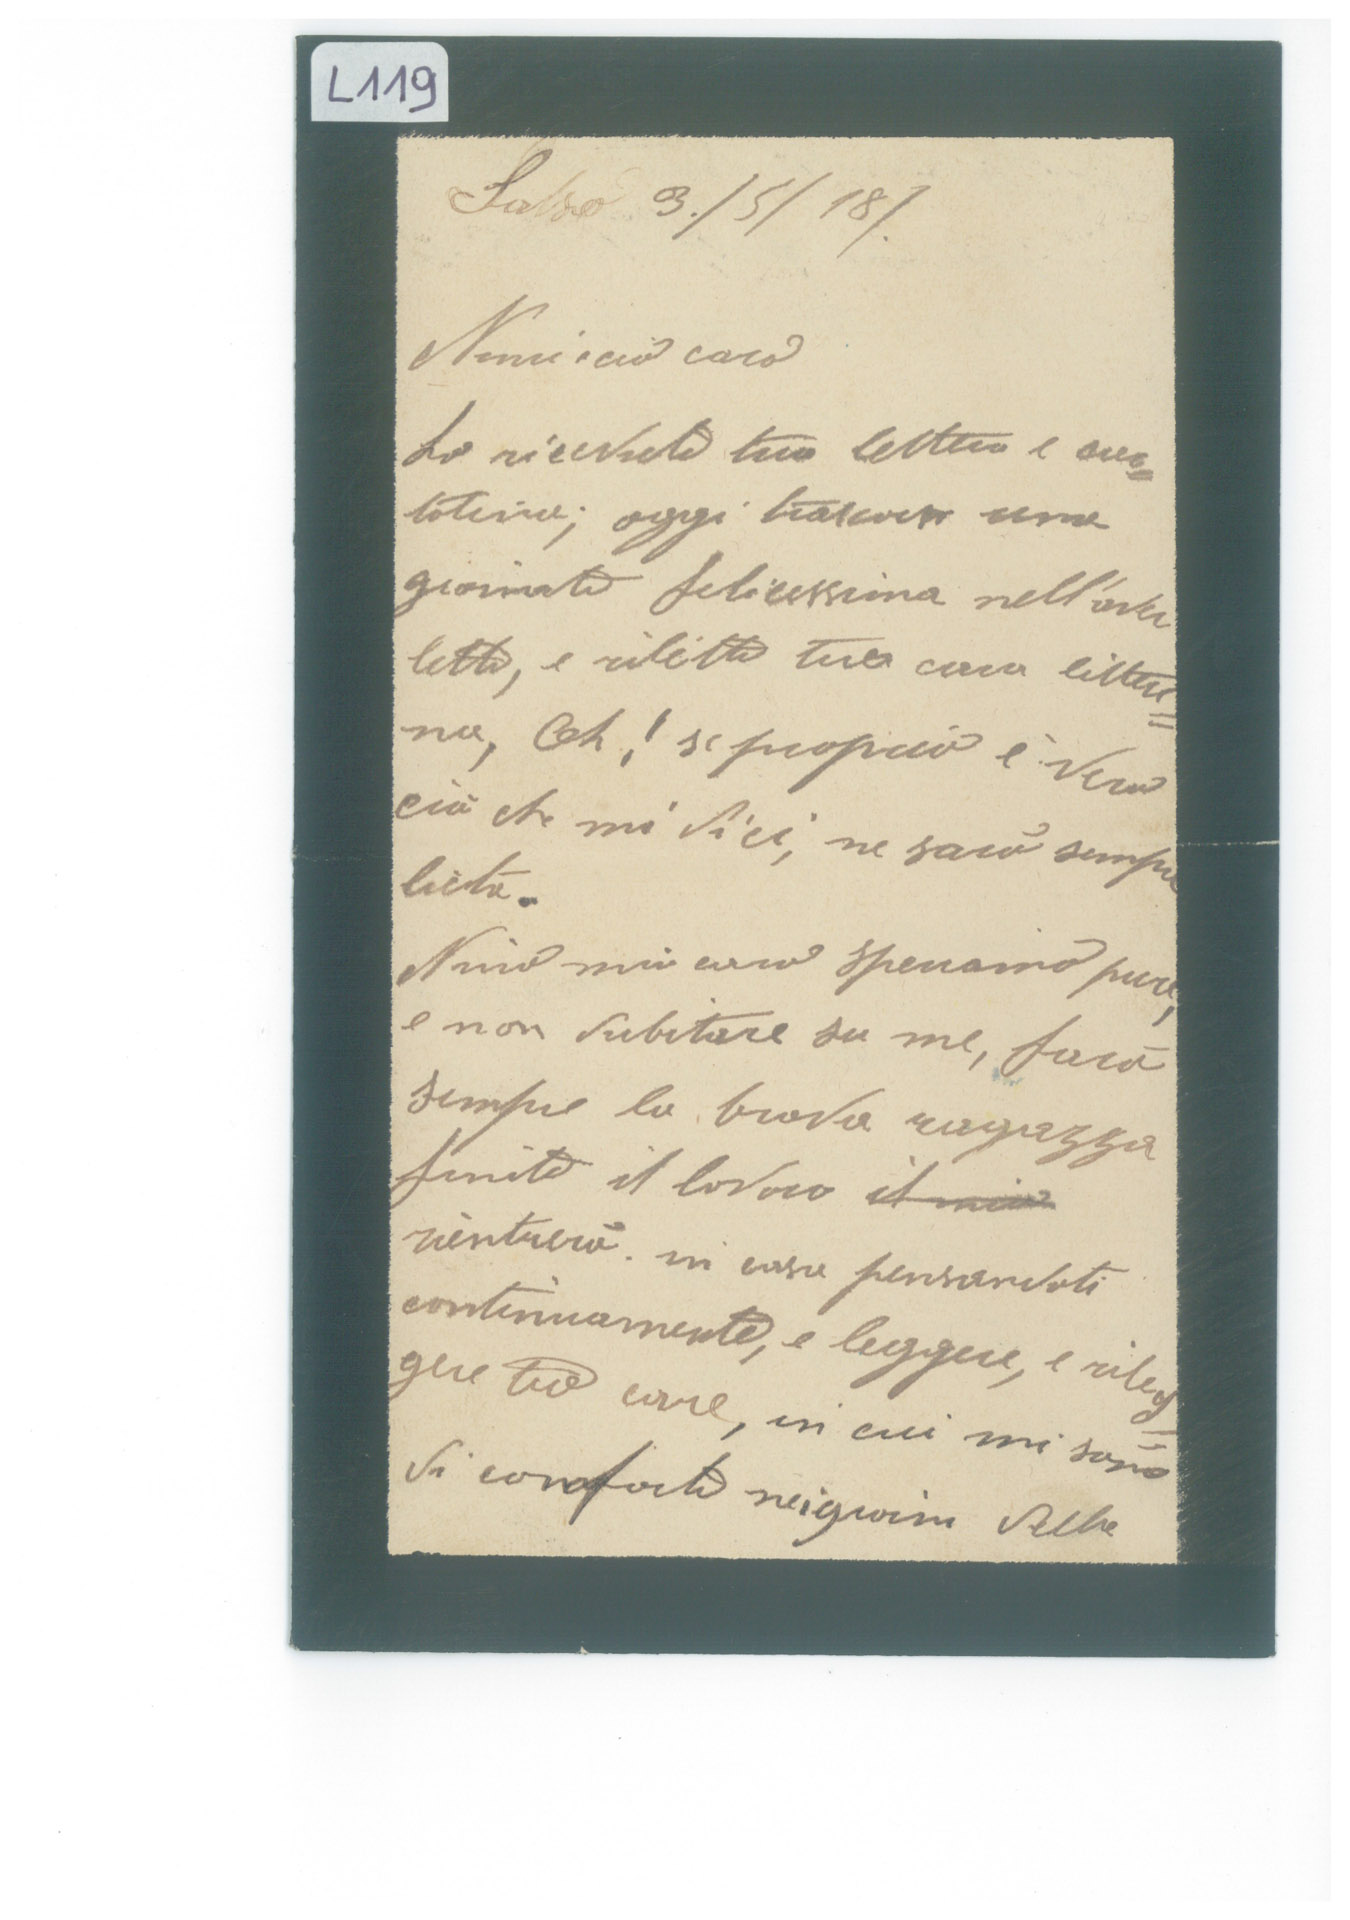 L119
Salso 3./5/18/.
Nini mio caro
Ho ricevuto tua lettera e
oggi trascorsi una
giornata felicissima nell'aver
letto, e riletto tua cara letteri=
na, Oh,! se proprio è vero
ciò che mi dici, ne sarò sempre
lieta.
Nino mio caro speriamo pure,
e non dubitare su me, farò
sempre la brava ragazza
finito il lavoro il mio
rientrerò in casa pensandoti
continuamente, e leggere, e rileg=
gere tuo care, in cui mi sono
di conforto nei giorni delle